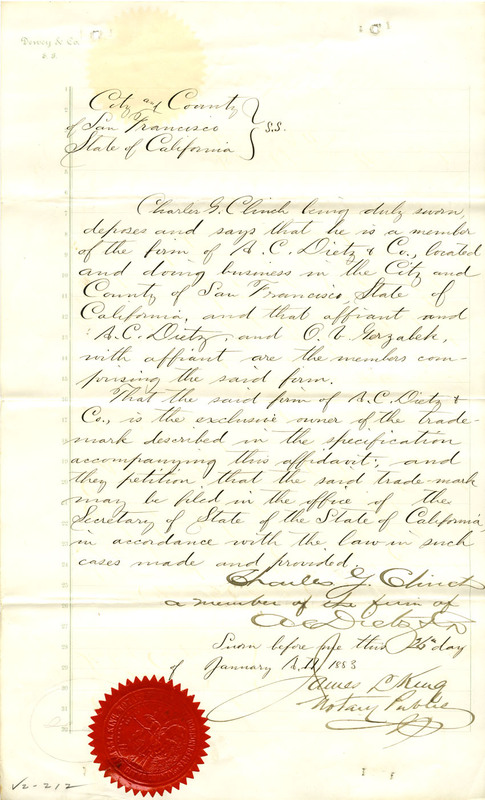 Dewey & Co.
City and County
of San Francisco } S.S.
State of California
Charles G. Clinch being duly sworn,
deposes and says that he is a member
of the firm of A. C. Dietz & Co., located
and doing business in the City and
County of San Francisco, State of
California, and that affiant and
A. C. Dietz, and O. V. Gerzabek,
with affiant are the members com-
prising the said firm.
That the said firm of A. C. Dietz &
Co., is the exclusive owner of the trade-
mark described in the specification
accompanying this affidavit; and
they petition that the said trade-mark
may be filed in the office of the
Secretary of State of the State of California,
in accordance with the law in such
cases made and provided.
Charles G. Clinch
a member of the firm of
A C Dietz & Co
Sworn before me this 26th day
of January A.D. 1883
James L. King
Notary Public
V2-212